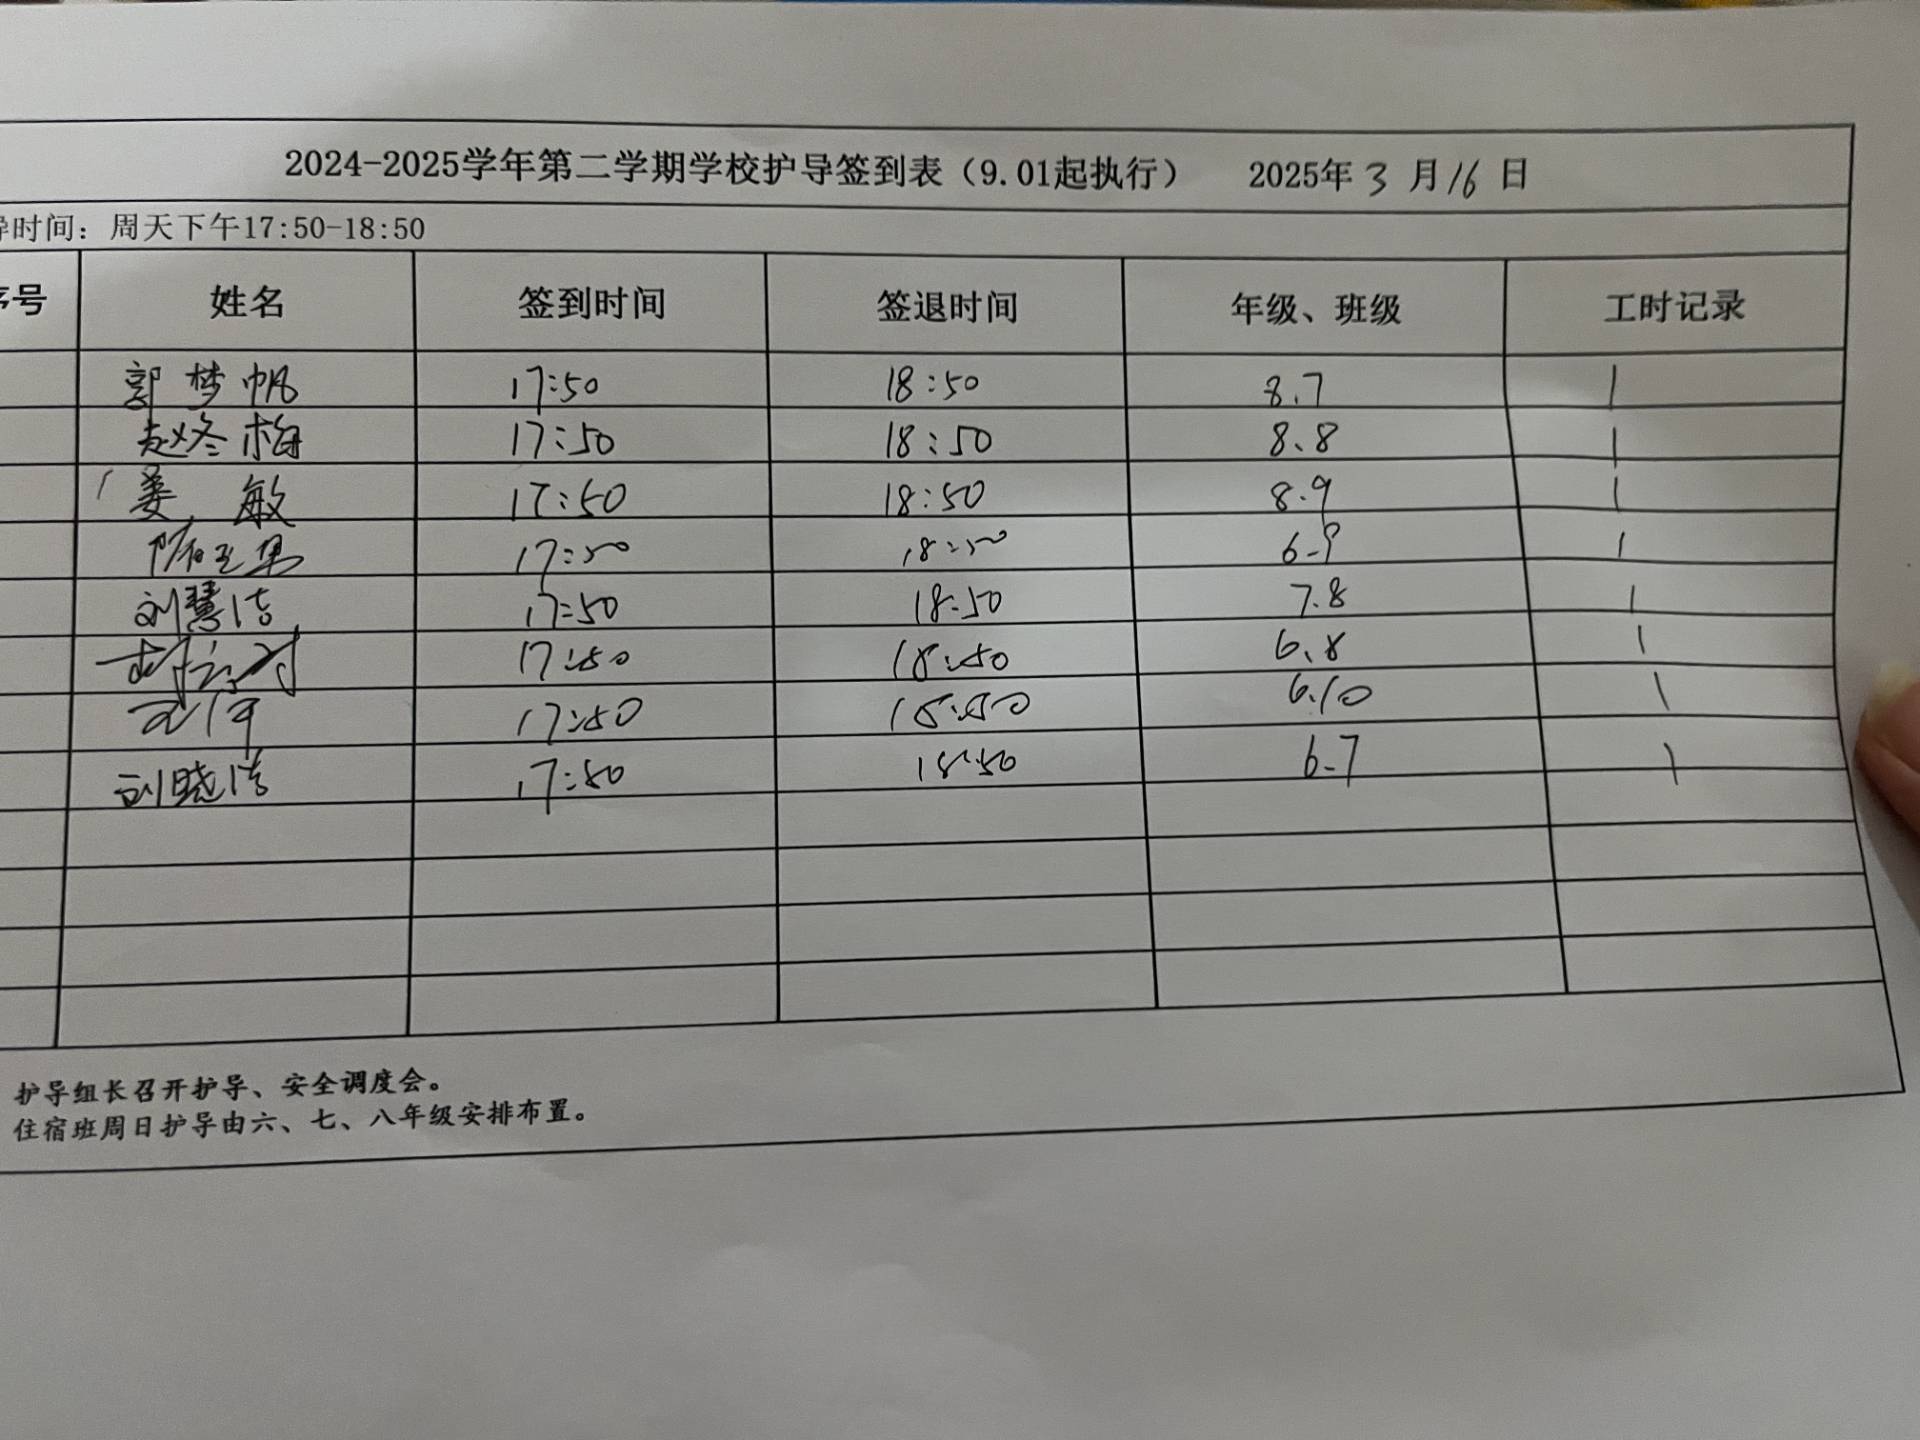 2024-2025学年第二学期学校护导签到表（9.01起执行） 2025年 3 月 16 日
导时间：周天下午17:50-18:50
序号 姓名 签到时间 签退时间 年级、班级 工时记录
郭梦帆 17:50 18:50 8.7 1
赵冬梅 17:50 18:50 8.8 1
姜敏 17:50 18:50 8.9 1
17:50 18:50 6.9 1
刘慧洁 17:50 18:50 7.8 1
17:50 18:50 6.8 1
17:50 18:50 6.10 1
刘晓洁 17:50 18:50 6.7 1
护导组长召开护导、安全调度会。
住宿班周日护导由六、七、八年级安排布置。